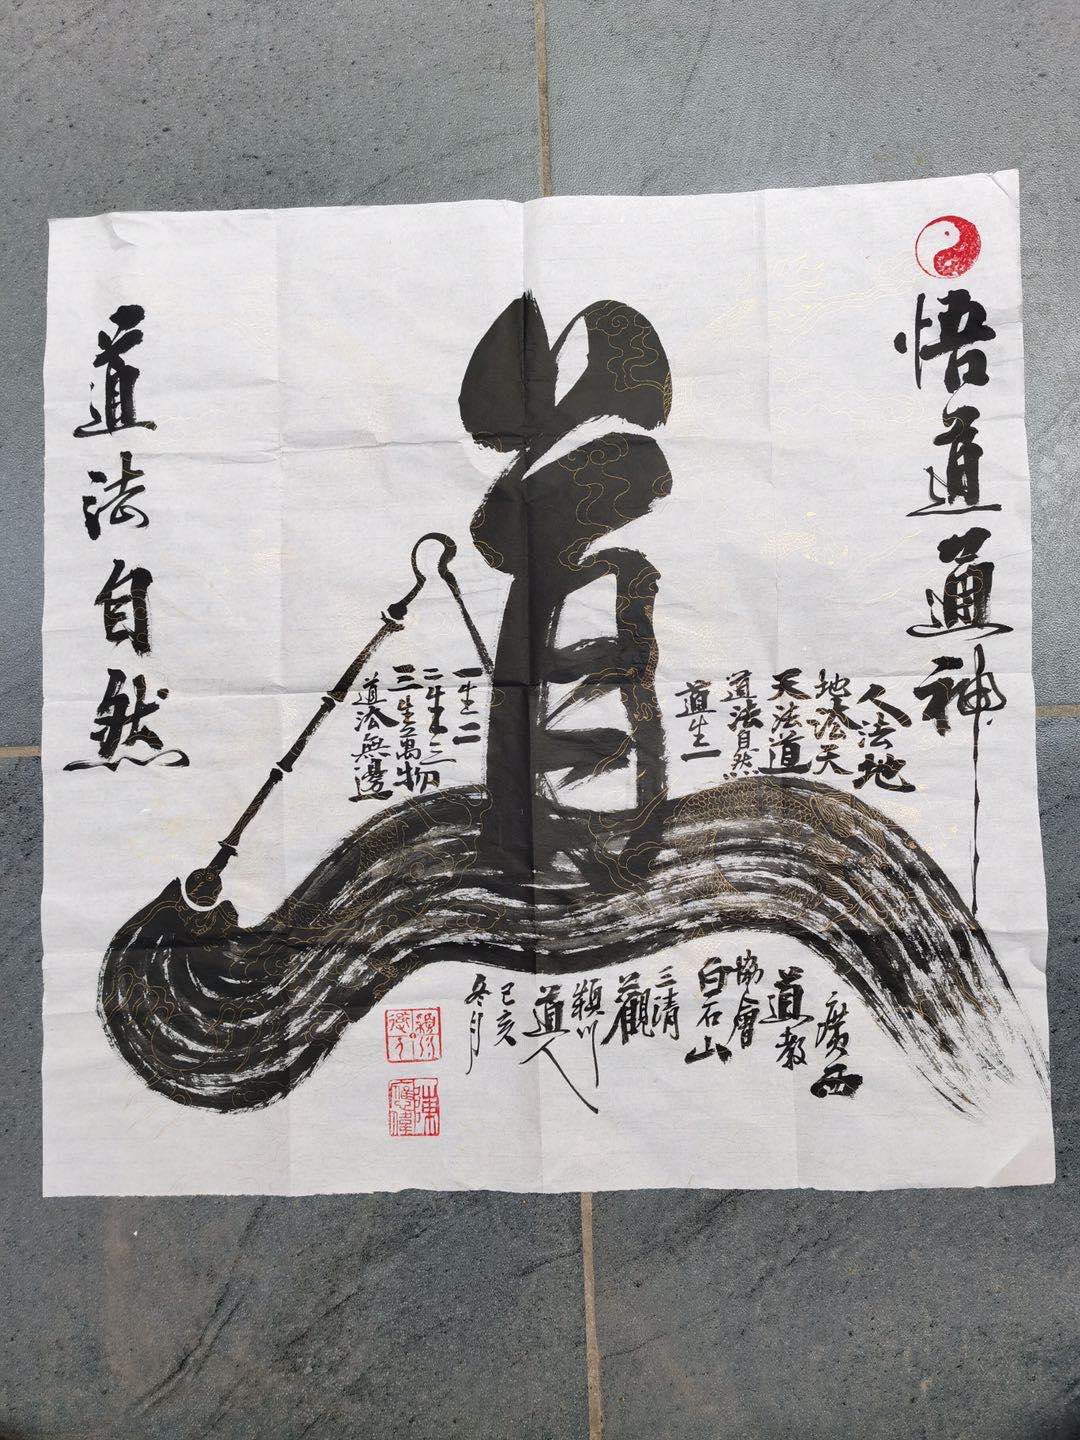 悟道通神
道
人法地
地法天
天法道
道法自然
道生一
一生二
二生三
三生萬物
道法無邊
道法自然
廣西
道教
協會
白石山
三清
觀
穎川
道人
己亥
冬月
陳